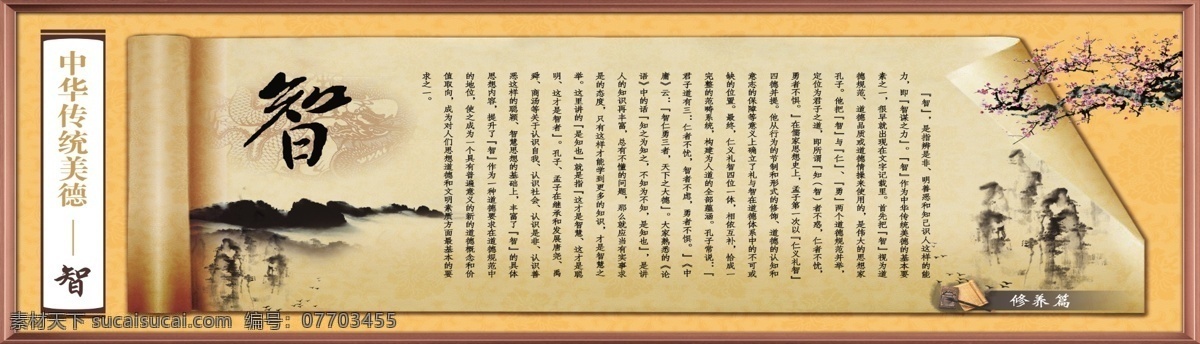 中华传统美德——智
智
「智」，是指辨是非、明善恶和知己识人这样的能
力，即「智谋之力」。「智」作为中华传统美德的基本要
素之一，很早就出现在文字记载里。首先把「智」视为道
德规范、道德品质或道德情操来使用的，是伟大的思想家
孔子。他把「智」与「仁」、「勇」两个道德规范并举，
定位为君子之道，即所谓「知（智）者不惑，仁者不忧，
勇者不惧。」在儒家思想史上，孟子第一次以「仁义礼智」
四德并提。他从行为的节制和形式的修饰、道德的认知和
意志的保障等意义上确立了礼与智在道德体系中的不可或
缺的位置。最终，仁义礼智四位一体，相依互补，恰成一
完整的范畴系统，构建为人道的全部蕴涵。孔子常说：「
君子道有三：仁者不忧，智者不虑，勇者不惧。」《中
庸》云：「智仁勇三者，天下之大德」。大家熟悉的《论
语》中的话「知之为知之，不知为不知，是知也」，是讲
人的知识再丰富，总有不懂的问题，那么就应当有实事求
是的态度，只有这样才能学到更多的知识，才是智慧之
举。这里讲的「是知也」就是指「这才是智慧、这才是聪
明、这才是智者」。孔子、孟子在继承和发展唐尧、禹
舜、商汤等关于认识自我、认识社会、认识是非、认识善
恶这样的聪颖、智慧思想的基础上，丰富了「智」的具体
思想内容，提升了「智」作为一种道德要求在道德规范中
的地位，使之成为一个具有普遍意义的新的道德概念和价
值取向，成为对人们思想道德和文明素质方面最基本的要
求之一。
修养篇
素材天下 sucaisucai.com 编号：07703455